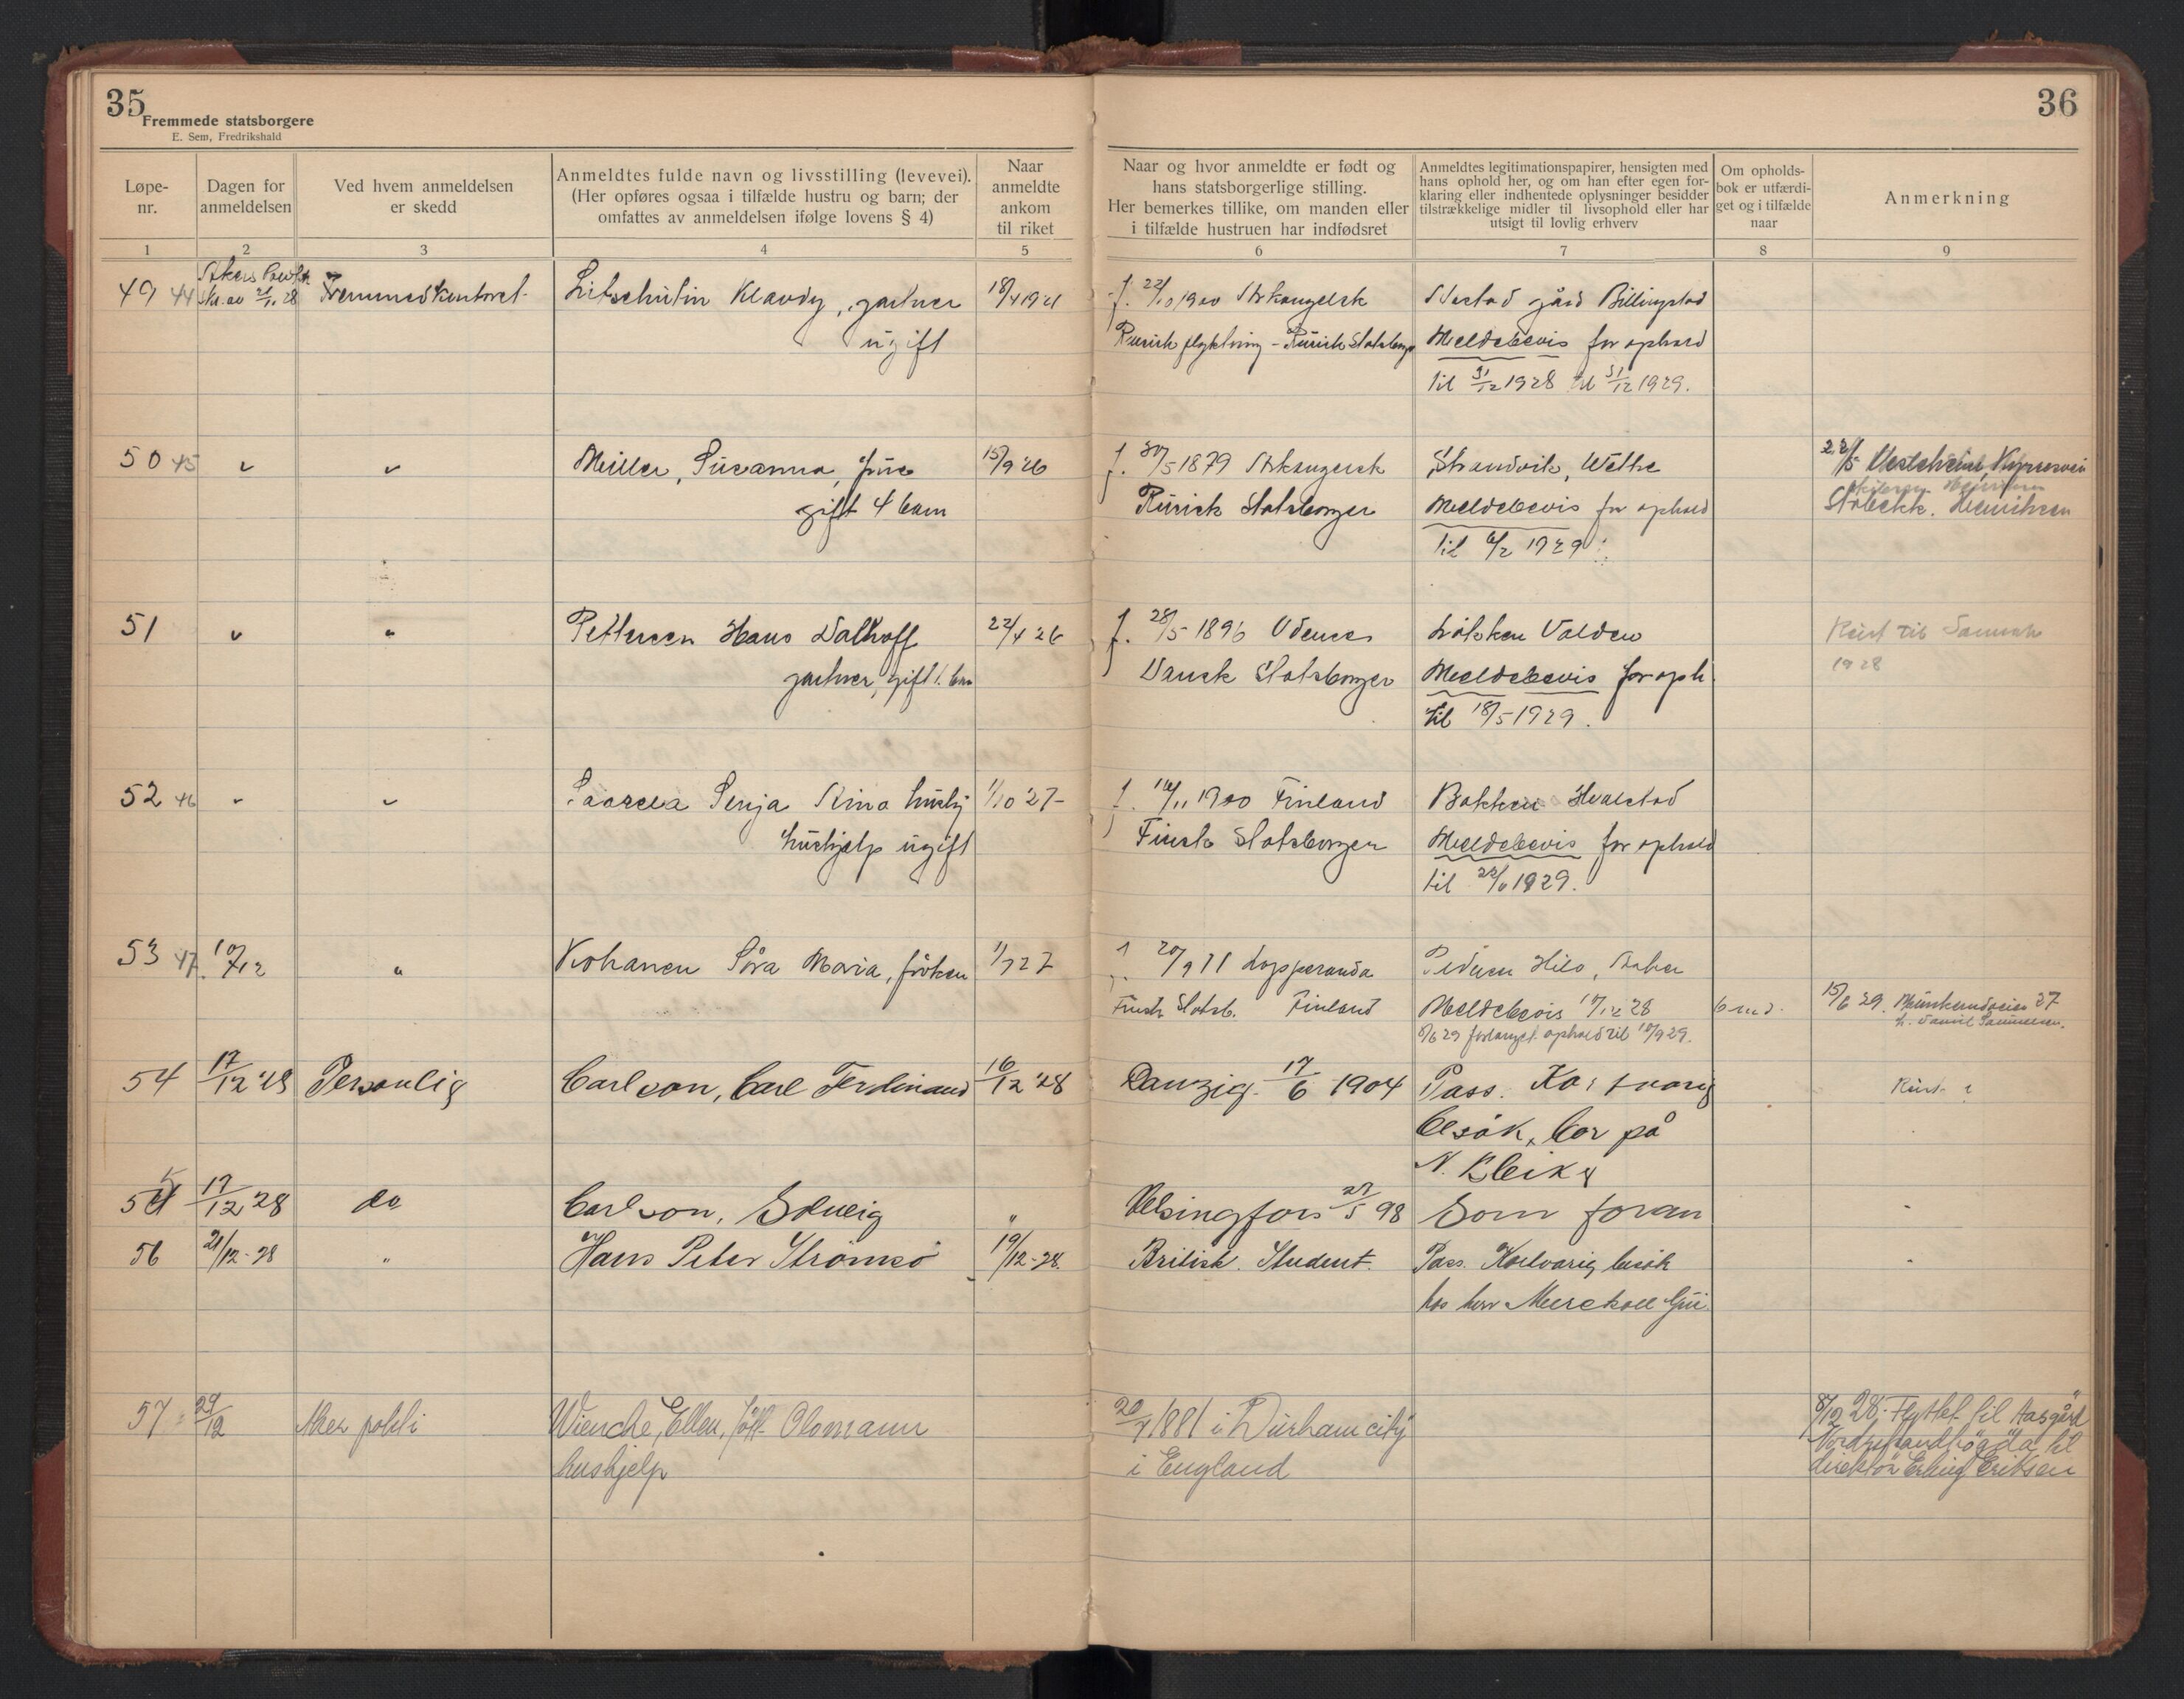 35
Fremmede statsborgere
E. Sem, Fredrikshald
36
Løpe-
nr.
Dagen for
anmeldelsen
Ved hvem anmeldelsen
er skedd
Anmeldtes fulde navn og livsstilling (levevei).
(Her opføres ogsaa i tilfælde hustru og barn; der
omfattes av anmeldelsen ifølge lovens § 4)
Naar
anmeldte
ankom
til riket
Naar og hvor anmeldte er født og
hans statsborgerlige stilling.
Her bemerkes tillike, om manden eller
i tilfælde hustruen har indfødsret
Anmeldtes legitimationspapirer, hensigten med
hans ophold her, og om han efter egen for-
klaring eller indhentede oplysninger besidder
tilstrækkelige midler til livsophold eller har
utsigt til lovlig erhverv
Om opholds-
bok er utfærdi-
get og i tilfælde
naar
Anmerkning
1 2 3 4 5 6 7 8 9
49 44 Fremmedkontoret Litschutin Klavdy, gartner 18/4 1921 f. 22/10 1900 Arkangelsk gård Billingstad
ugift Russisk flyktning - Russisk Statsborger Meldebevis for ophold
til 31/12 1928 til 31/12 1929.
50 45 " " Müller, Susanna, frue 15/9 26 f. 30/5 1879 Arkangelsk Strandvik,
gift 4 barn Russisk Statsborger Meldebevis for ophold Stabekk. Henriksen
til 6/2 1929
51 " " Pettersen Hans Dalhoff 22/4 26 f. 28/5 1896 Odense Løkken Valden Reist til Danmark
gartner, gift 1. barn Dansk Statsborger Meldebevis for oph. 1928
til 18/5 1929.
52 46 " " Senja 1/10 27 f. 16/11 1900 Finland Bakken Hvalstad
hushjelp ugift Finsk Statsborger Meldebevis for ophold
til 1929.
53 47 10/12 " Maria, frøken 1/7 27 f. Finsk Statsb. Finland
Meldebevis 10/12 28 6 md. 15/6 29. 27
8/6 29 forlenget ophold til 10/9 29.
54 17/12 '28 Personlig Carlson, Carl Ferdinand 16/12 '28 Danzig 17/6 1904 Pass. Kortvarig Reist
besøk, bor på
N. Bleiker
55 17/12 '28 do Carlson, Solveig " Helsingfors 27/5 98 Som foran
56 21/12-28 " Hans Peter Strømsø 19/12-28. Britisk. Student. Pass. Kortvarig besøk
hos herr
57 29/12 Aker politi Wiencke, Ellen, født Olomann 20/4 1881 i Durham city 8/12 28. Flyttet til Aasgård
hushjelp i England Nordstrandhøgda til
direktør Erling Eriksen